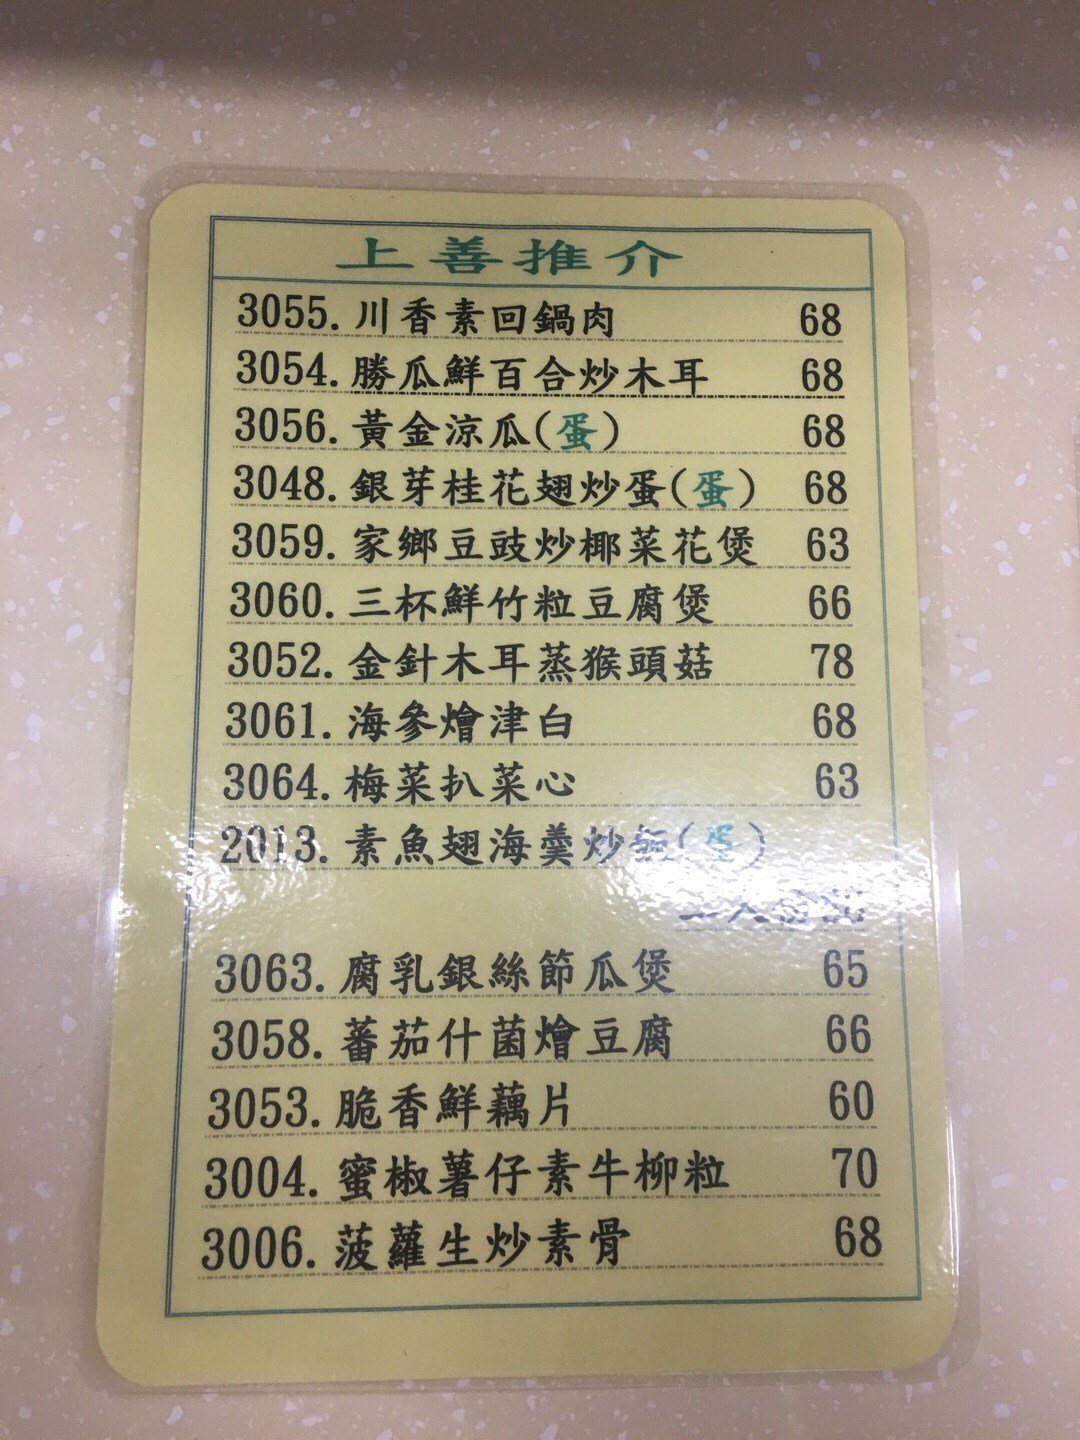 上善推介
3055. 川香素回鍋肉 68
3054. 勝瓜鮮百合炒木耳 68
3056. 黃金涼瓜(蛋) 68
3048. 銀芽桂花翅炒蛋(蛋) 68
3059. 家鄉豆豉炒椰菜花煲 63
3060. 三杯鮮竹粒豆腐煲 66
3052. 金針木耳蒸猴頭菇 78
3061. 海參燴津白 68
3064. 梅菜扒菜心 63
2013. 素魚翅海羹炒(蛋)
3063. 腐乳銀絲節瓜煲 65
3058. 蕃茄什菌燴豆腐 66
3053. 脆香鮮藕片 60
3004. 蜜椒薯仔素牛柳粒 70
3006. 菠蘿生炒素骨 68